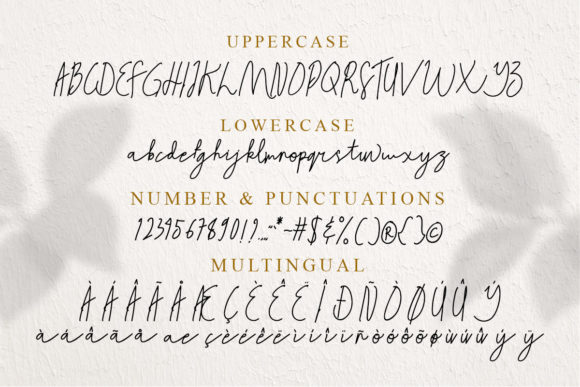 UPPERCASE
ABCDEFGHIJKLMNOPQRSTUVWXYZ
LOWERCASE
abcdefghijklmnopqrstuvwxyz
NUMBER & PUNCTUATIONS
1234567890!?.,:;"*~#$&%()®{}©
MULTINGUAL
ÀÁÂÃÄÅÆÇÈÉÊËÎÐÑÒØÚÛÝ
àáâãäåæçèéêëìíîïñòóôõøùúûüýÿ